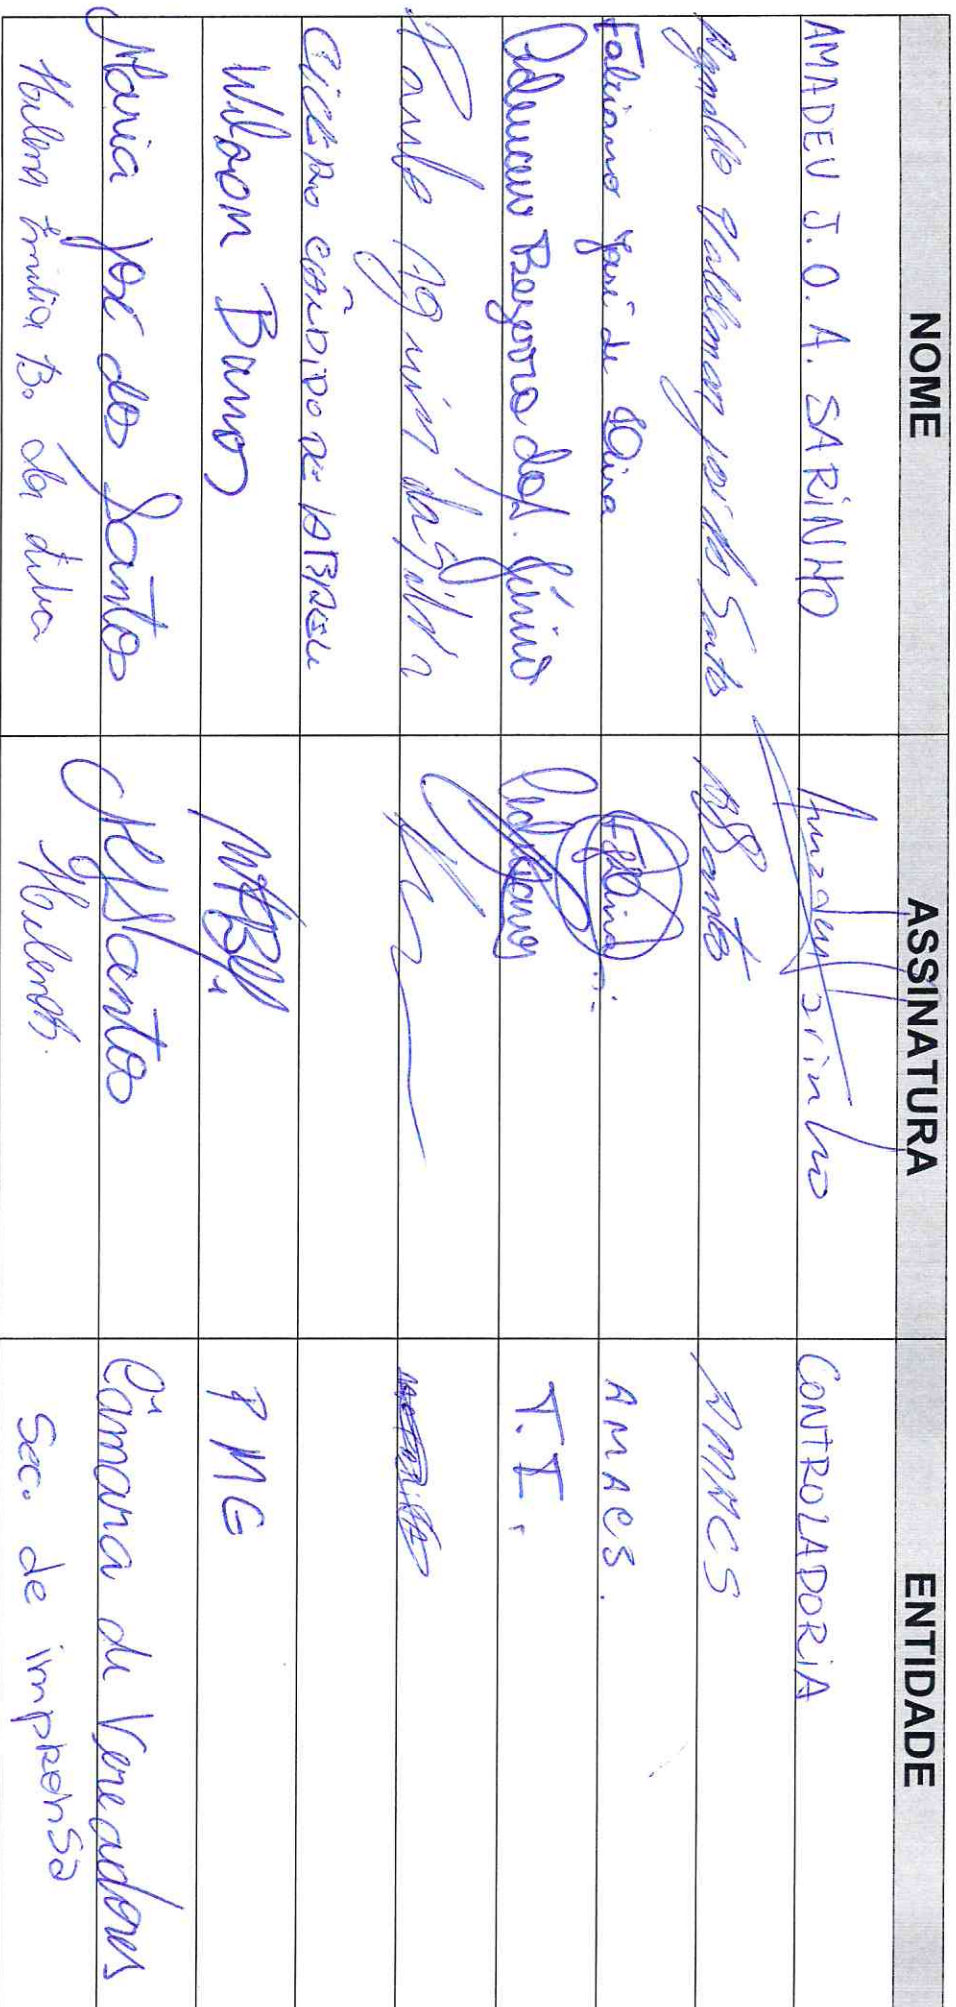 NOME ASSINATURA ENTIDADE
AMADEU J. O. A. SARINHO Amadeu Sarinho CONTROLADORIA
Agnaldo Valdemar José dos Santos AMACS
Fabiano José de Lima FJLima AMACS.
Ademar Bezerra da S. Júnior T.I.
Paulo Aguiar da Silva
CICERO CÂNDIDO DE ABREU
Wilson Barros PMG
Maria José dos Santos MJSantos Câmara de Vereadores
Emília B. da Silva Sec. de imprensa